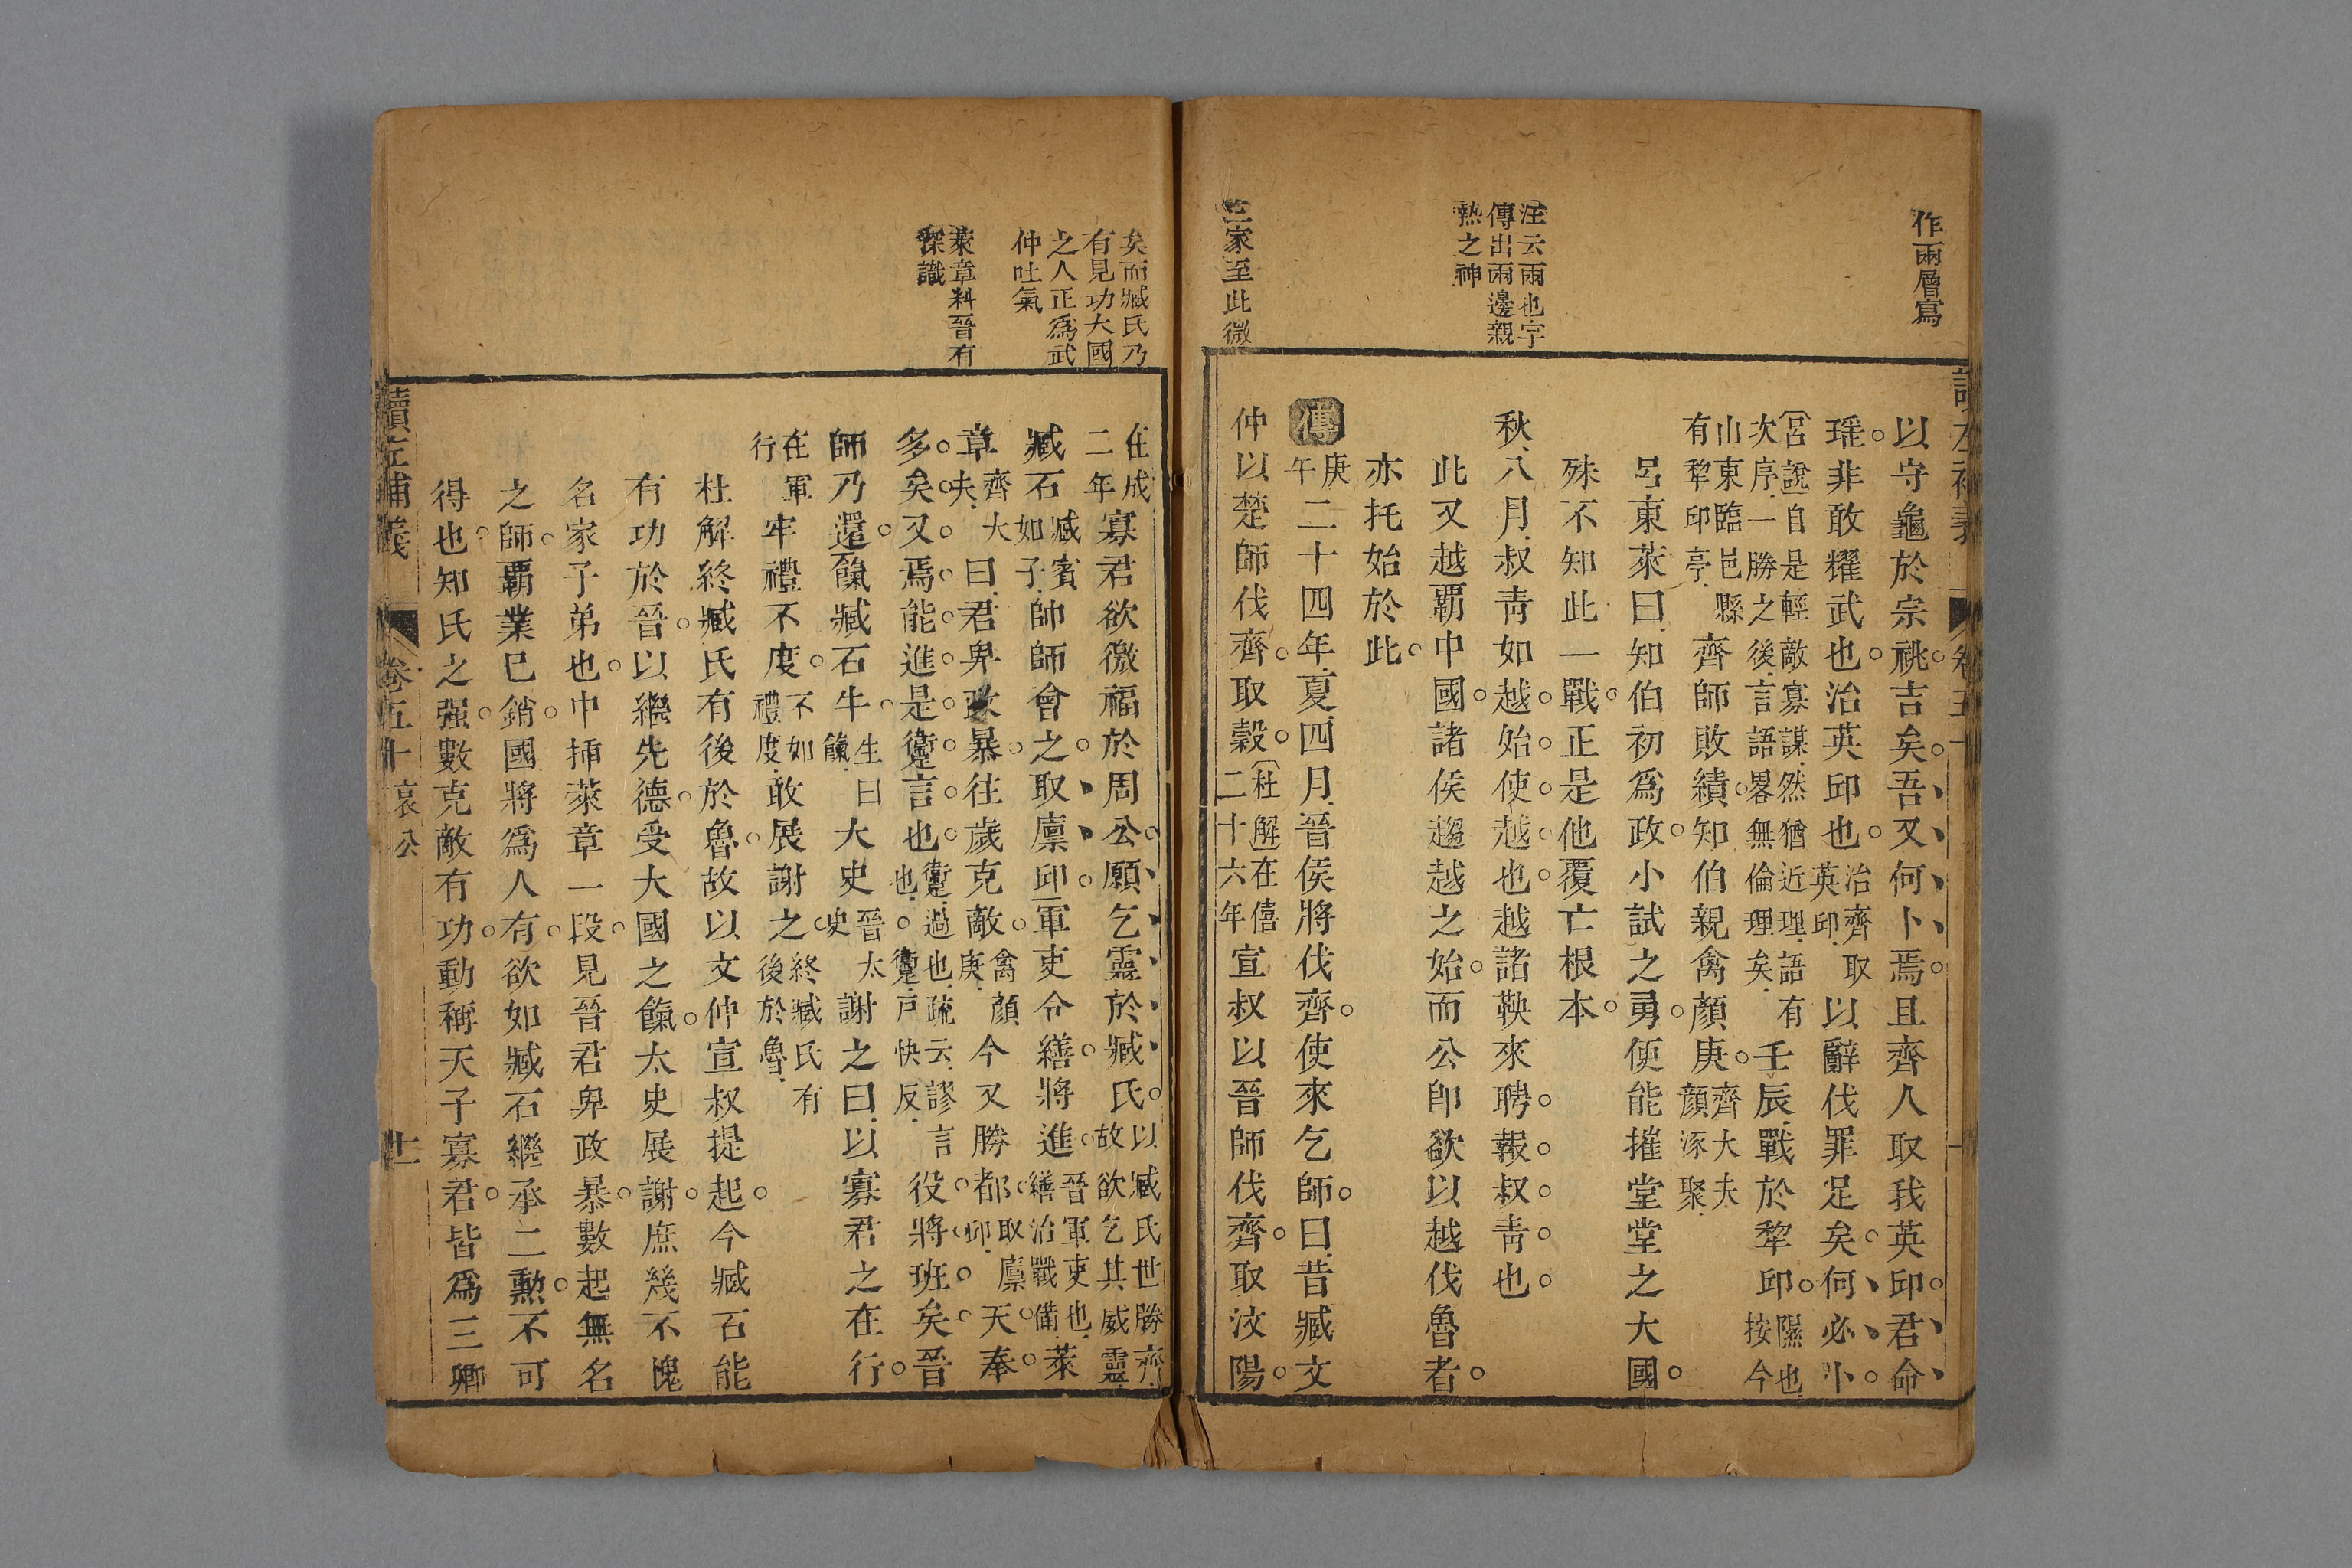 作兩層寫
注云兩也字
傳出兩邊親
熱之神
三家至此微
以守龜於宗祧吉矣吾又何卜焉且齊人取我英邱君命
瑶非敢耀武也治英邱也治齊取英邱以辭伐罪足矣何必卜
宮說自是輕敵寡謀然猶近理語有次序一勝之後言語畧無倫理矣壬辰戰於犂邱隰也按今
山東臨邑縣有犂邱亭齊師敗績知伯親禽顔庚齊大夫顔涿聚
呂東萊曰知伯初為政小試之勇便能摧堂堂之大國
殊不知此一戰正是他覆亡根本
秋八月叔靑如越始使越也越諸鞅來聘報叔靑也
此又越覇中國諸侯趨越之始而公卽欲以越伐魯者
亦托始於此
傳庚午二十四年夏四月晉侯將伐齊使來乞師曰昔臧文
仲以楚師伐齊取穀杜解在僖二十六年宣叔以晉師伐齊取汶陽
讀左補義
卷五十
矣而臧氏乃
有見功大國
之人正爲武
仲吐氣
萊章料晉有
深識
在成二年寡君欲徼福於周公願乞靈於臧氏以臧氏世勝齊故欲乞其威靈
臧石臧賓如子帥師會之取廪邱軍吏令繕將進晉軍吏也繕治戰備萊
章齊大夫曰君卑政暴往歲克敵禽顔庚今又勝都取廪邱天奉
多矣又焉能進是躗言也躗過也疏云謬言也躗戸快反役將班矣晉
師乃還餼臧石牛生曰餼大史晉太史謝之曰以寡君之在行
在軍行牢禮不度不如禮度敢展謝之終臧氏有後於魯
杜解終臧氏有後於魯故以文仲宣叔提起今臧石能
有功於晉以繼先德受大國之餼太史展謝庶幾不媿
名家子弟也中揷萊章一段見晉君卑政暴數起無名
之師覇業已銷國將爲人有欲如臧石繼承二勲不可
得也知氏之强數克敵有功動稱天子寡君皆爲三卿
讀左補義
卷五十 哀公
十一